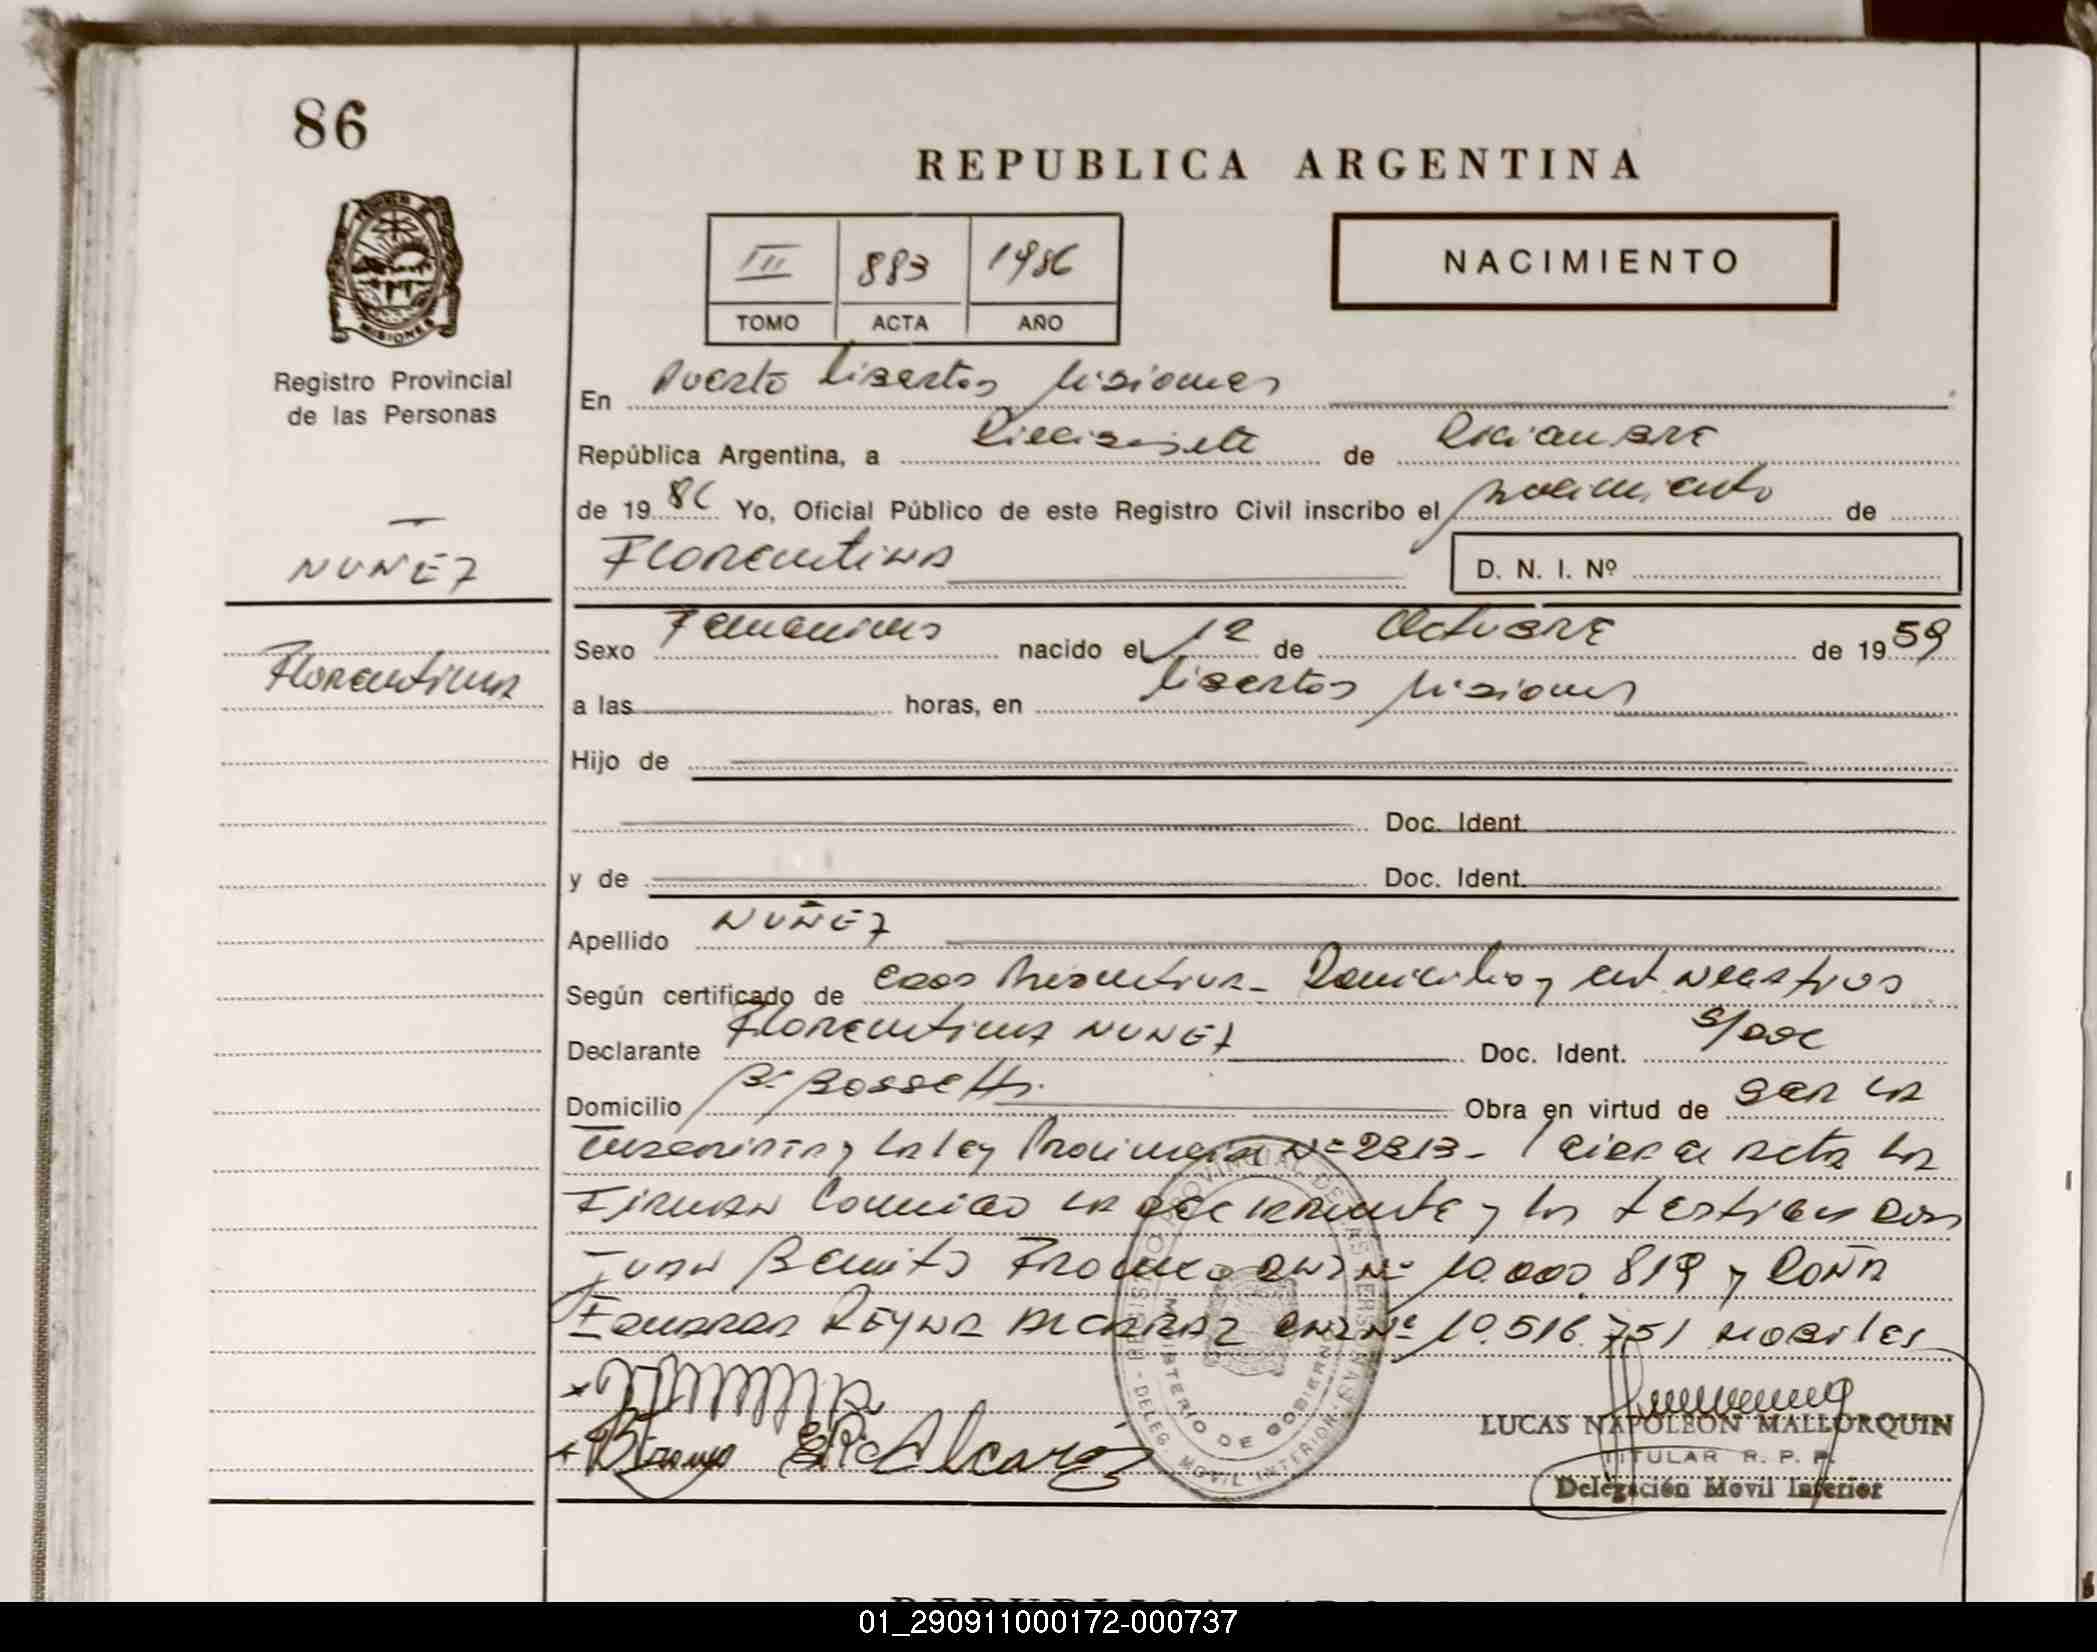 86
REPUBLICA ARGENTINA
MISIONES
III 883 1986
TOMO ACTA AÑO
NACIMIENTO
Registro Provincial
de las Personas
En Puerto Libertad Misiones
República Argentina, a Diecisiete de Diciembre
de 1986 Yo, Oficial Público de este Registro Civil inscribo el nacimiento de
NUÑEZ
Florentina
D. N. I. Nº
Florentina
Sexo Femenino nacido el 12 de Octubre de 1959
a las horas, en Libertad Misiones
Hijo de
Doc. Ident.
y de Doc. Ident.
Apellido NUÑEZ
Según certificado de Domicilio y
Declarante Florentina NUÑEZ Doc. Ident. S/doc
Domicilio Bº Bossetti Obra en virtud de ser la
y la ley Provincial Nº 2313- acta la
Firman Conmigo la declarante y los testigos Don
Juan Benito Franco DNI Nº 10.000.819 y Doña
Eduarda REYNA ALCARAZ DNI Nº 10.516.751 habiles
REGISTRO PROVINCIAL DE LAS PERSONAS
MINISTERIO DE GOBIERNO
- DELEG. MOVIL INTERIOR -
E R Alcaraz
LUCAS NAPOLEON MALLORQUIN
TITULAR R. P. P.
Delegación Movil Interior
01_290911000172-000737